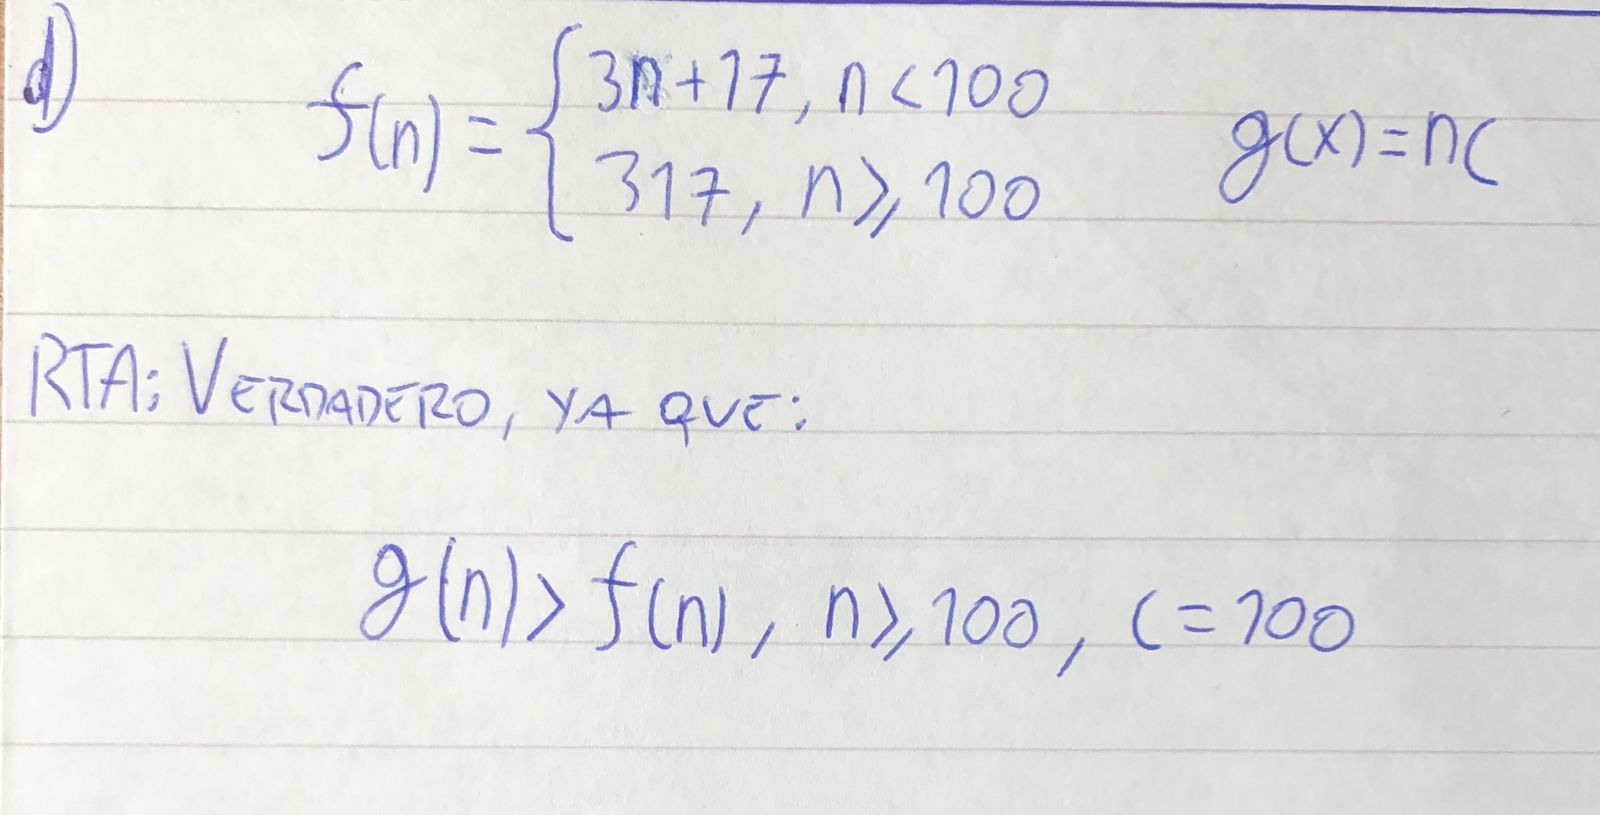 d) f(n) = { 3n+17, n < 100 g(x) = nc
317, n ≥ 100
RTA: VERDADERO, YA QUE:
g(n) > f(n), n ≥ 100, c = 100